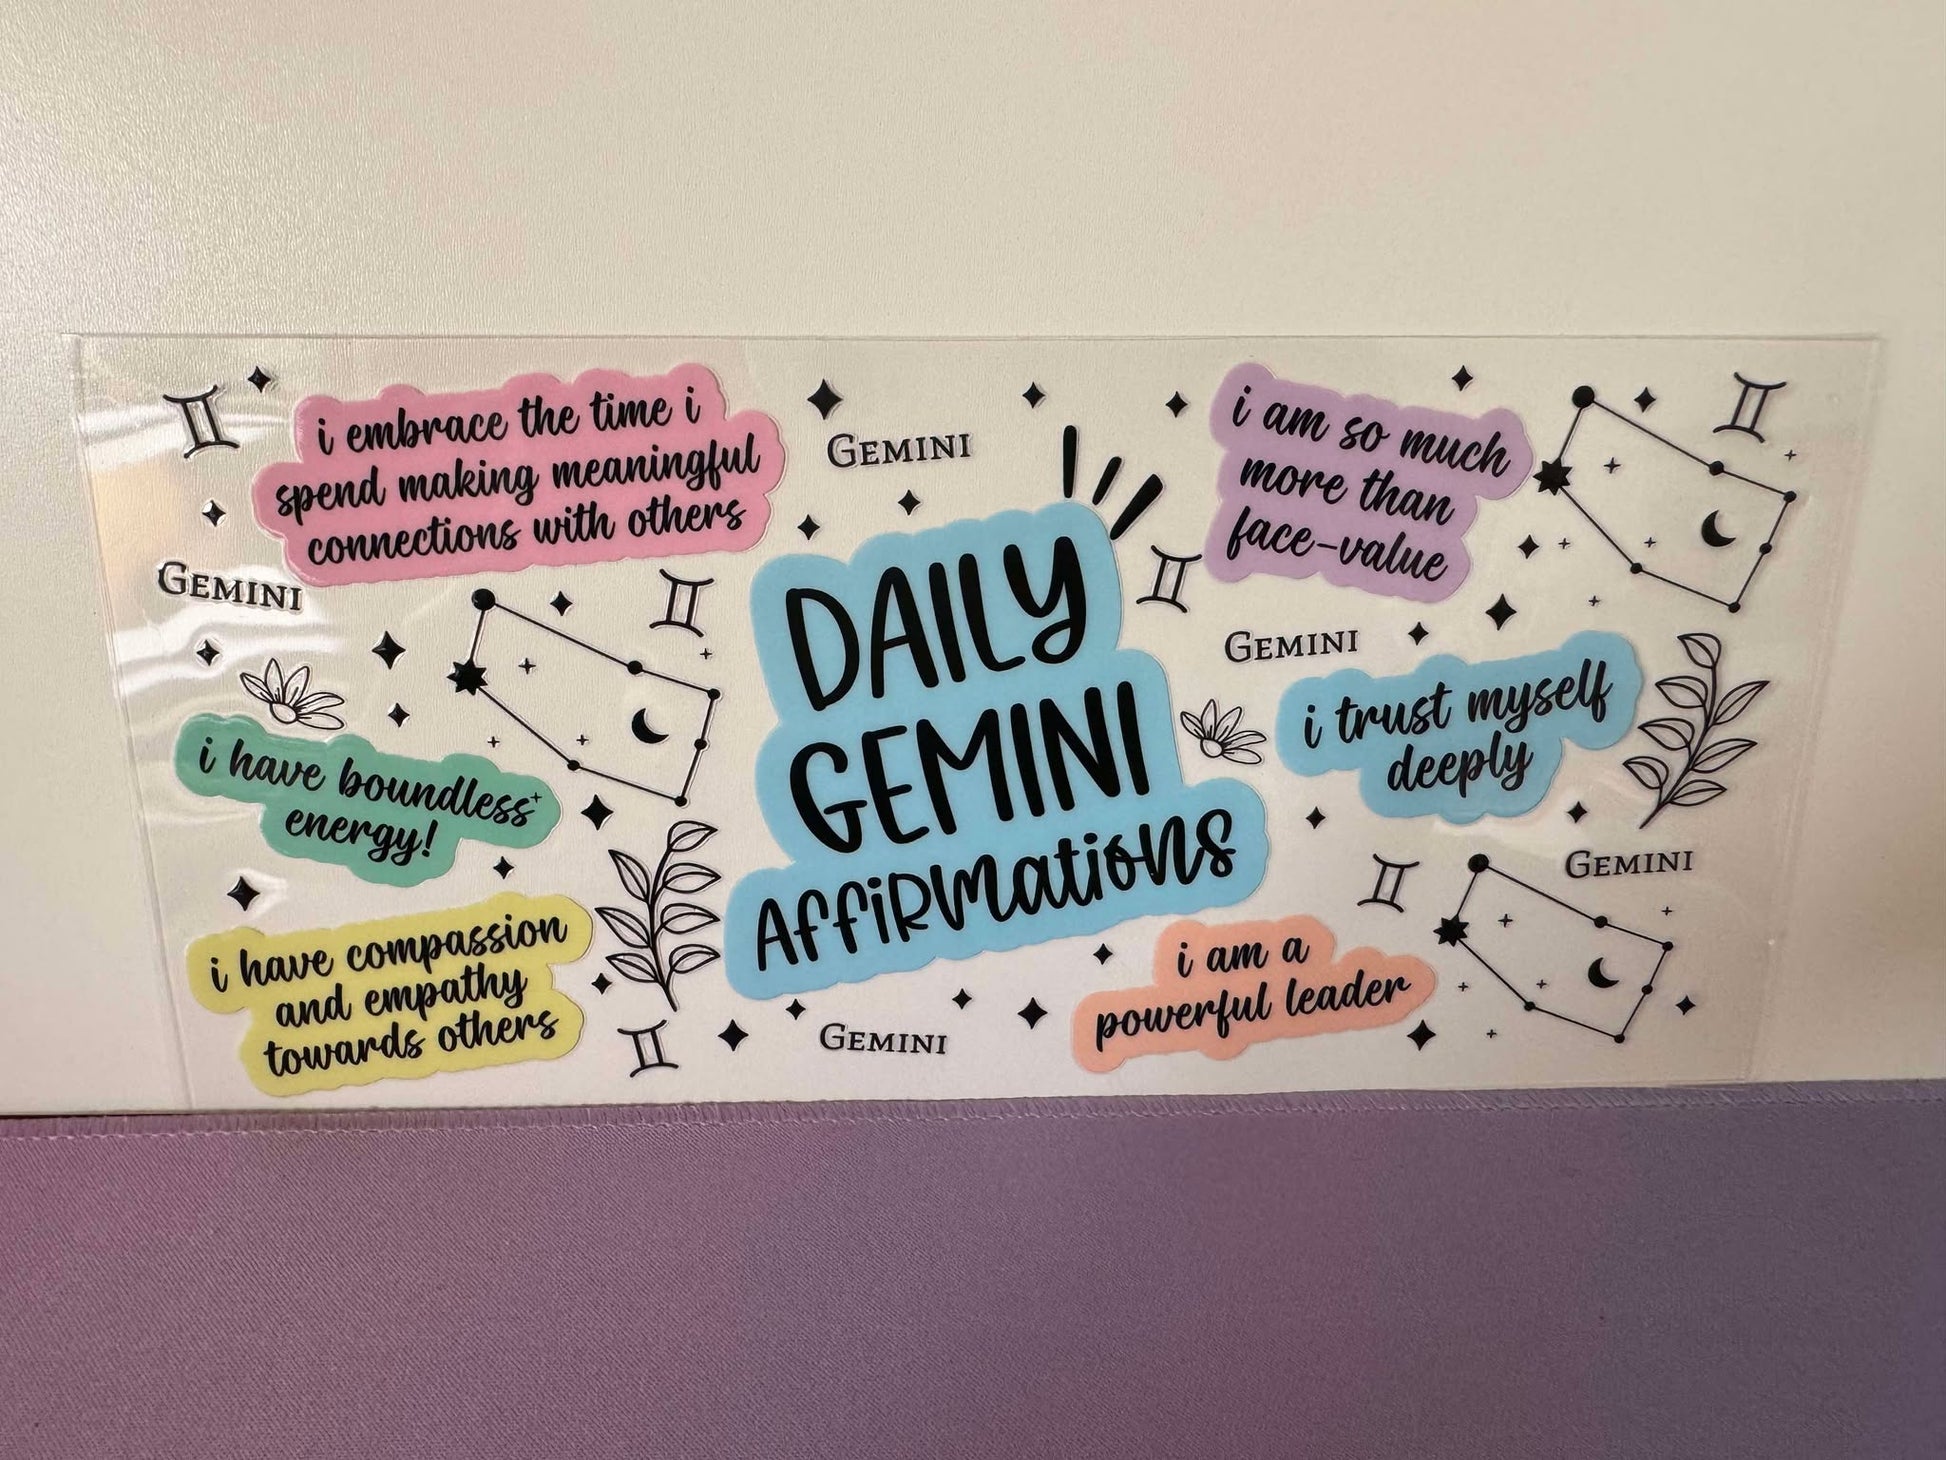 i embrace the time i
spend making meaningful
connections with others
GEMINI
i am so much
more than
face-value
GEMINI
DAILY
GEMINI
AFFiRMatioNS
GEMINI
i trust myself
deeply
i have boundless
energy!
GEMINI
i have compassion
and empathy
towards others
i am a
powerful leader
GEMINI